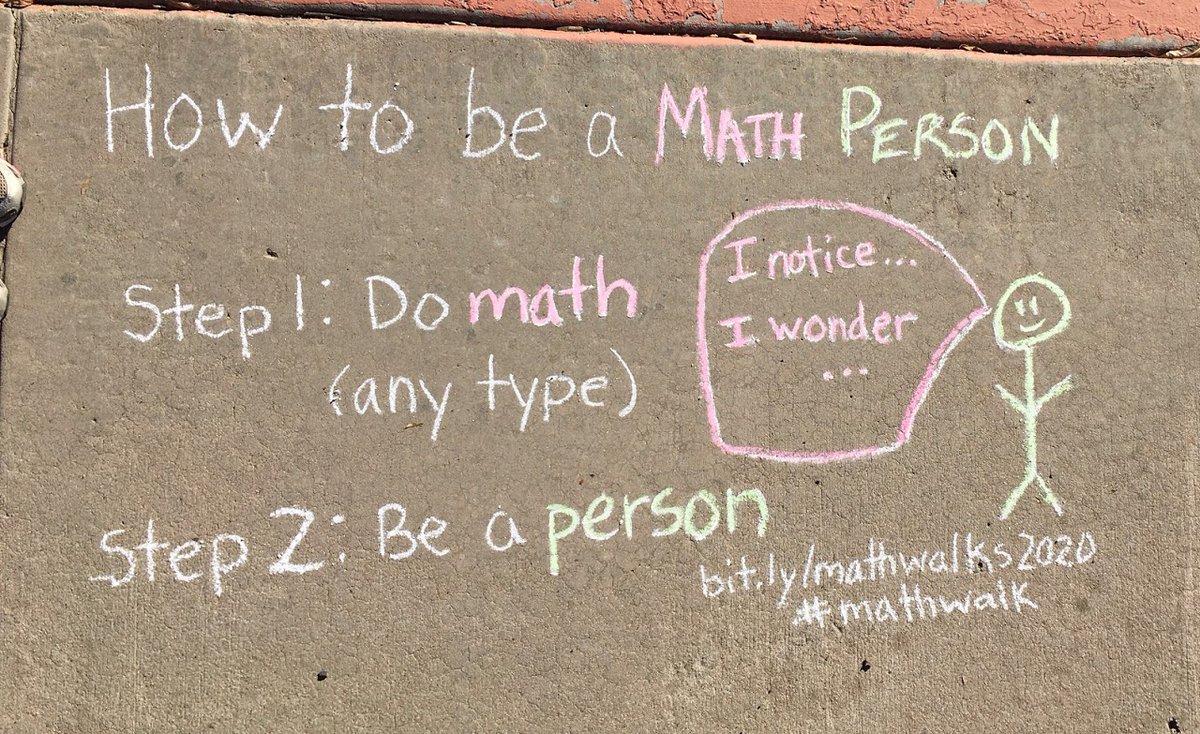 How to be a MATH PERSON
Step 1: Do math
(any type)
I notice...
I wonder
...
Step 2: Be a person
bit.ly/mathwalks2020
#mathwalk